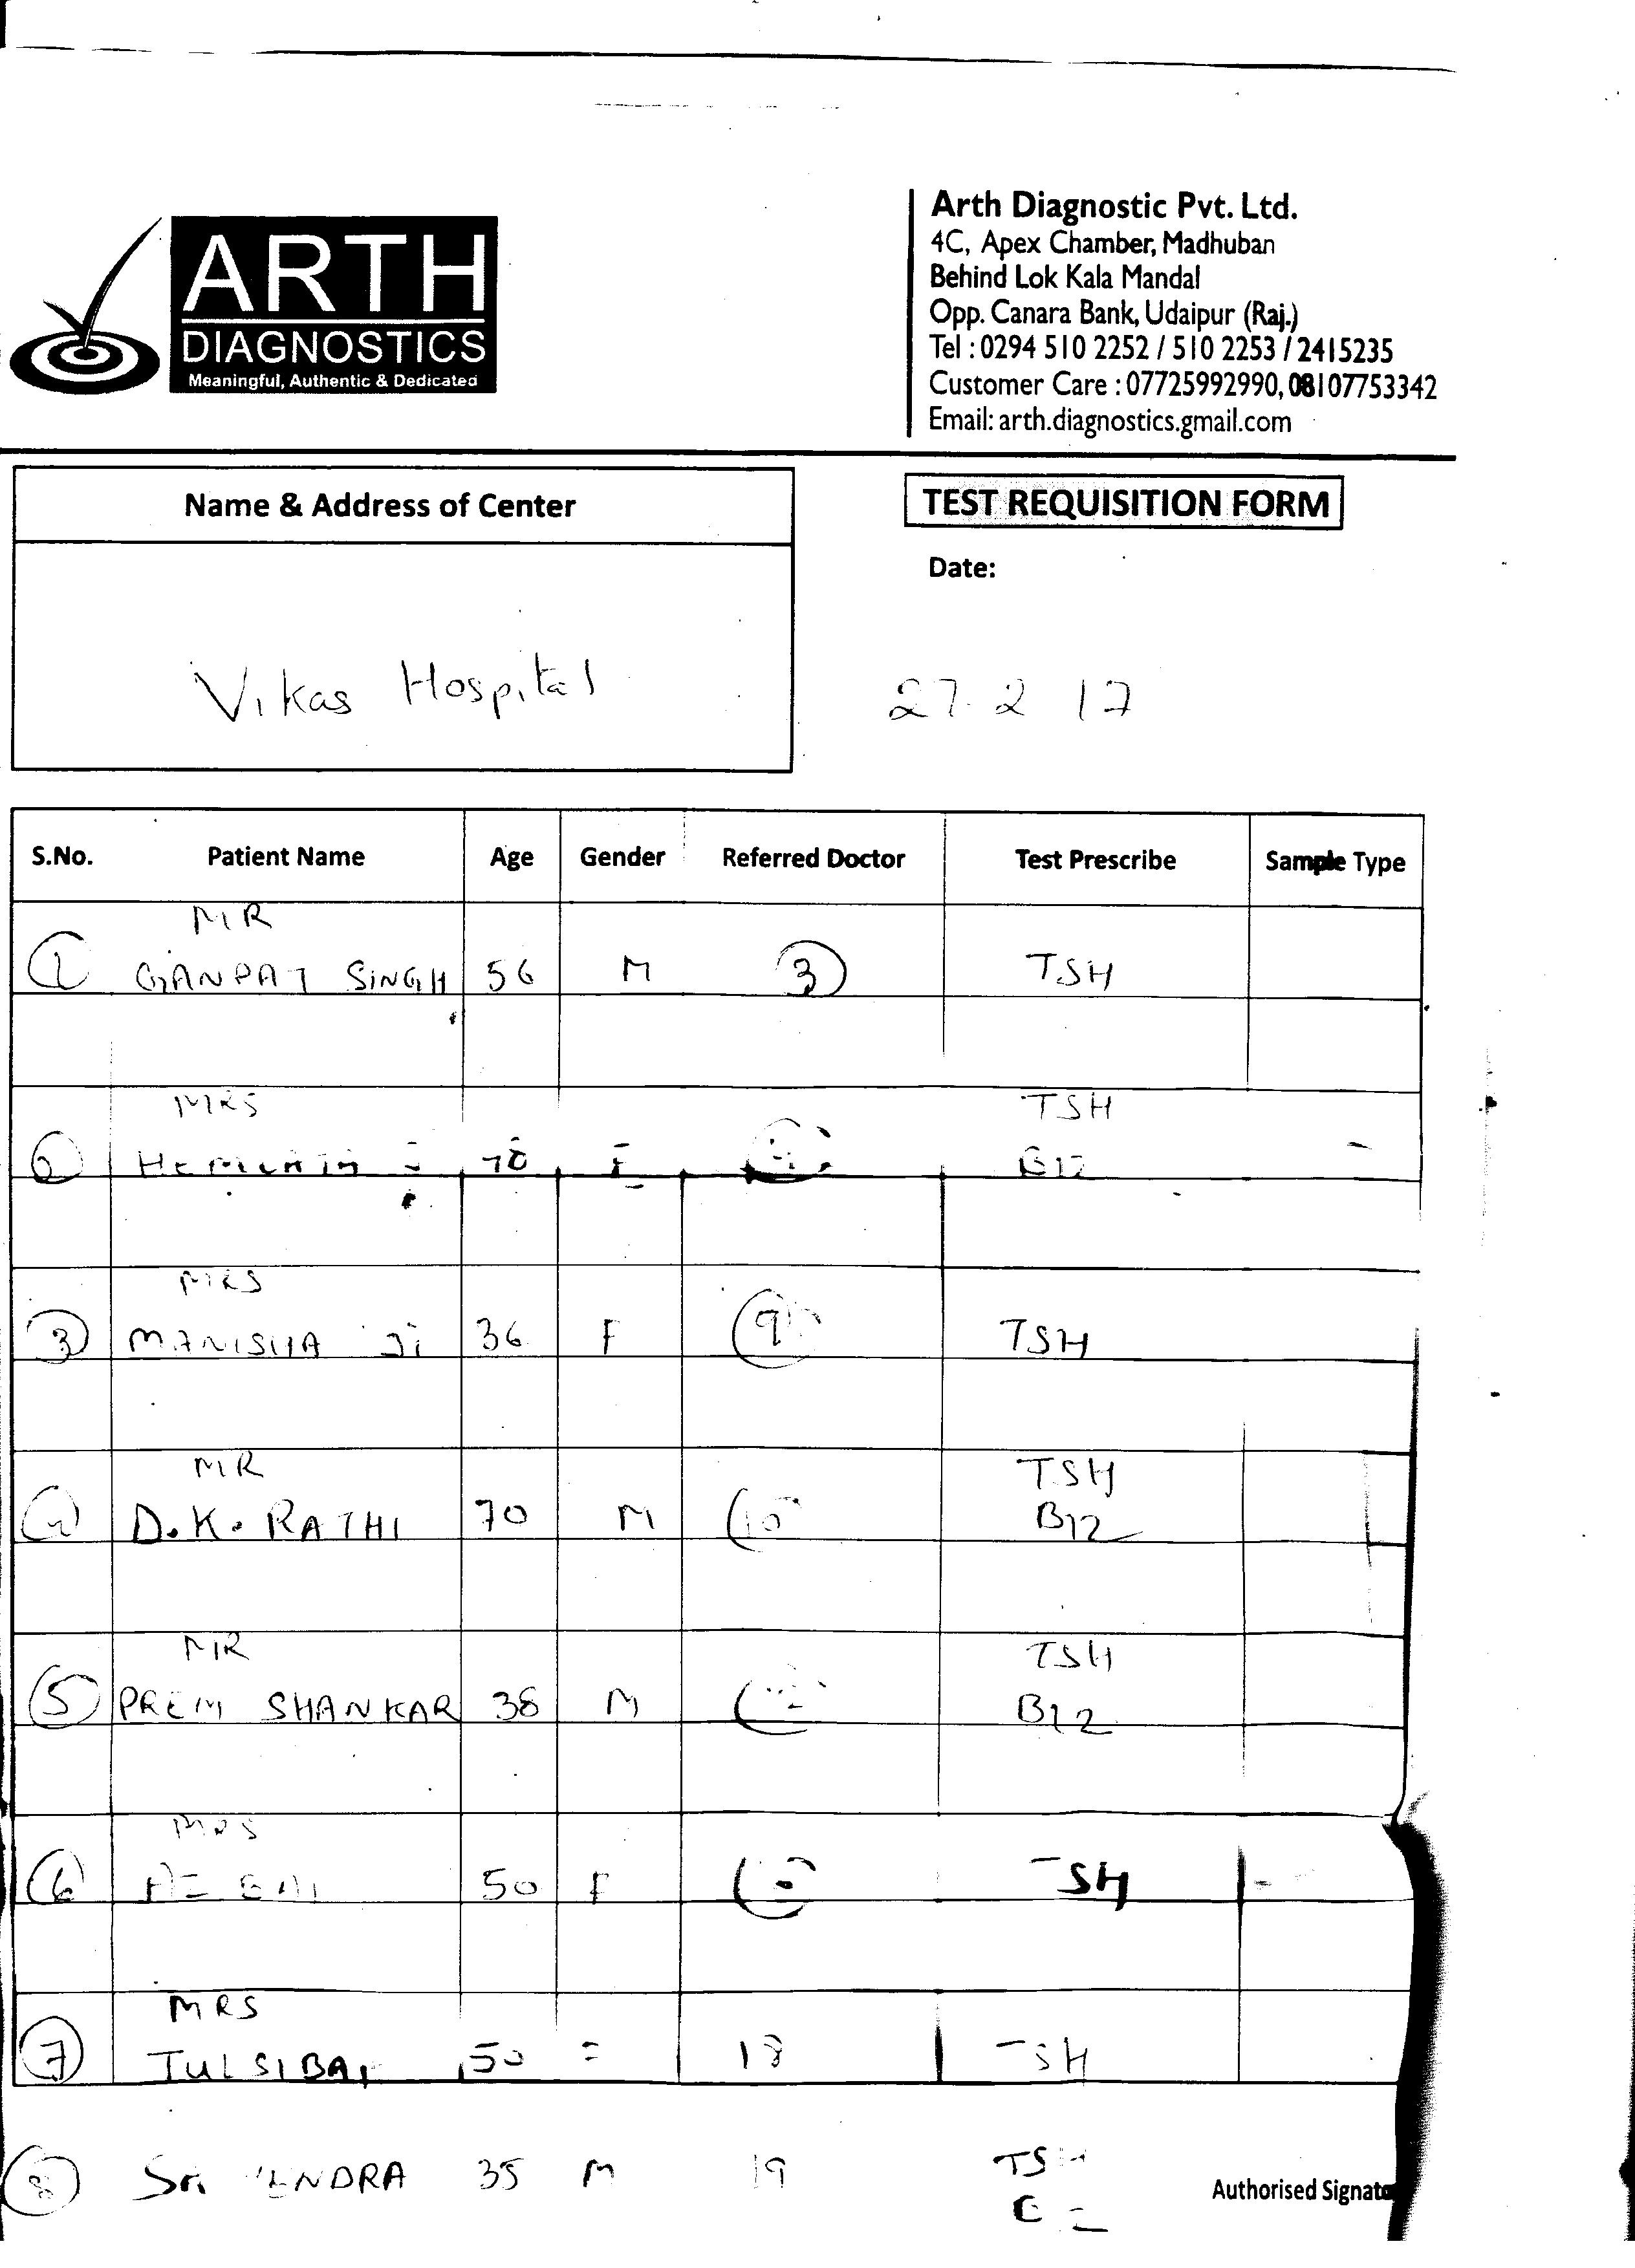 ARTH
DIAGNOSTICS
Meaningful, Authentic & Dedicated
Arth Diagnostic Pvt. Ltd.
4C, Apex Chamber, Madhuban
Behind Lok Kala Mandal
Opp. Canara Bank, Udaipur (Raj.)
Tel : 0294 510 2252 / 510 2253 / 2415235
Customer Care : 07725992990, 08107753342
Email: arth.diagnostics.gmail.com
Name & Address of Center
TEST REQUISITION FORM
Date:
Vikas Hospital
27.2 17
S.No. Patient Name Age Gender Referred Doctor Test Prescribe Sample Type
MR
1 GANPAT SINGH 56 M 3 TSH
MRS TSH
B12
MRS
3 MANISHA Ji 36 F 9 TSH
MR TSH
4 D.K. RATHI 70 M 10 B12
MR TSH
5 PREM SHANKAR 38 M B12
MRS
6 50 F TSH
MRS
7 TULSIBAI 50 18 TSH
8 35 M 19 TSH
Authorised